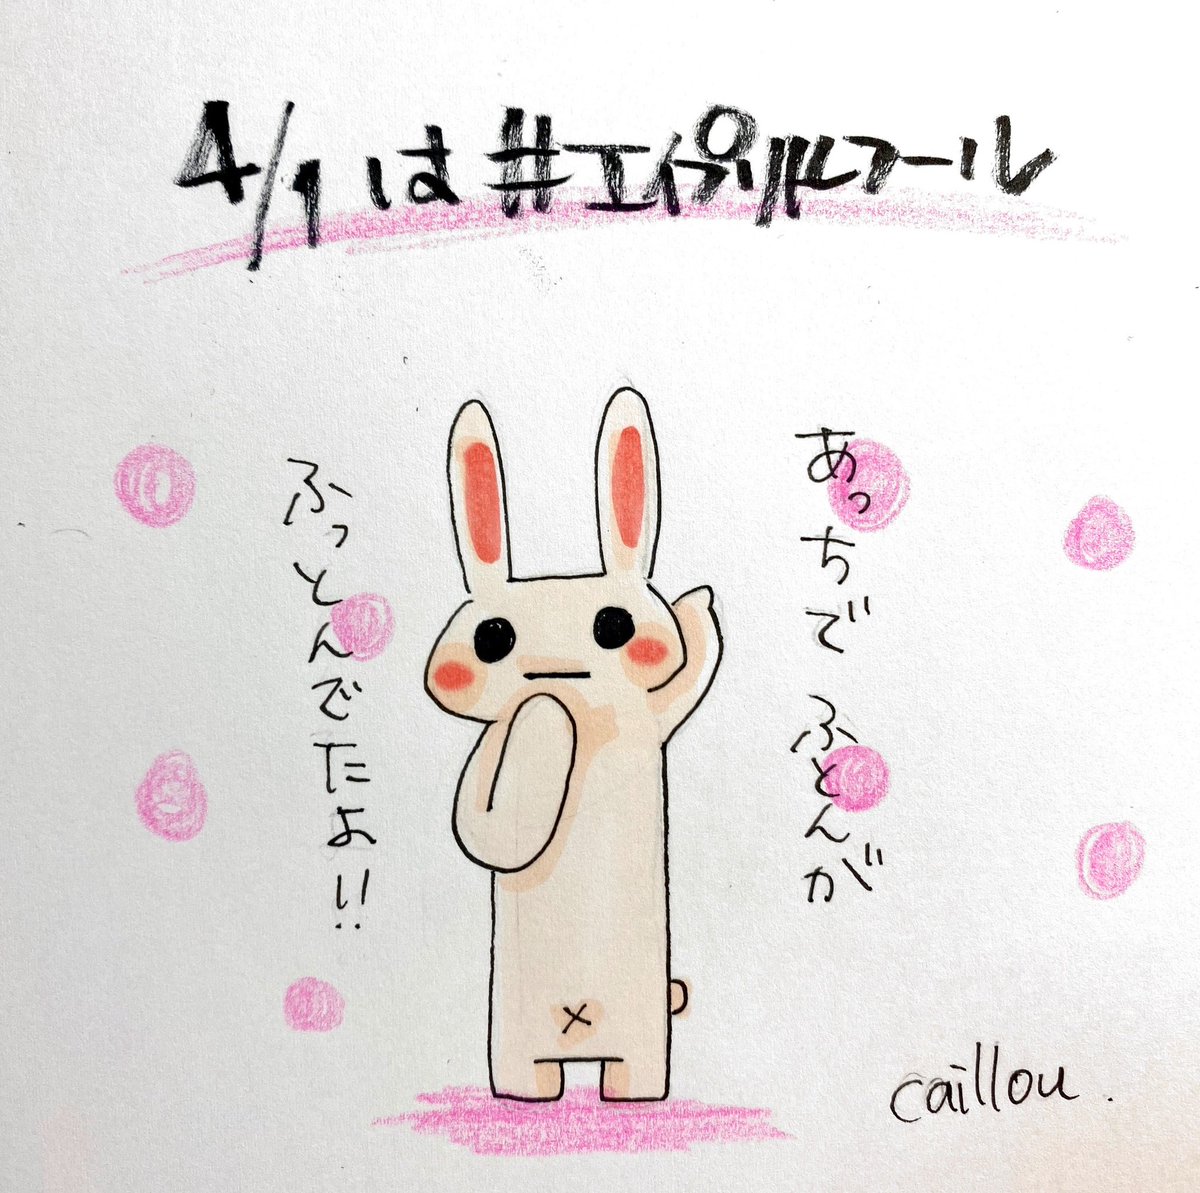 4/1は#エイプリルフール
あっちでふとんが
ふっとんでたよ!!
caillou.